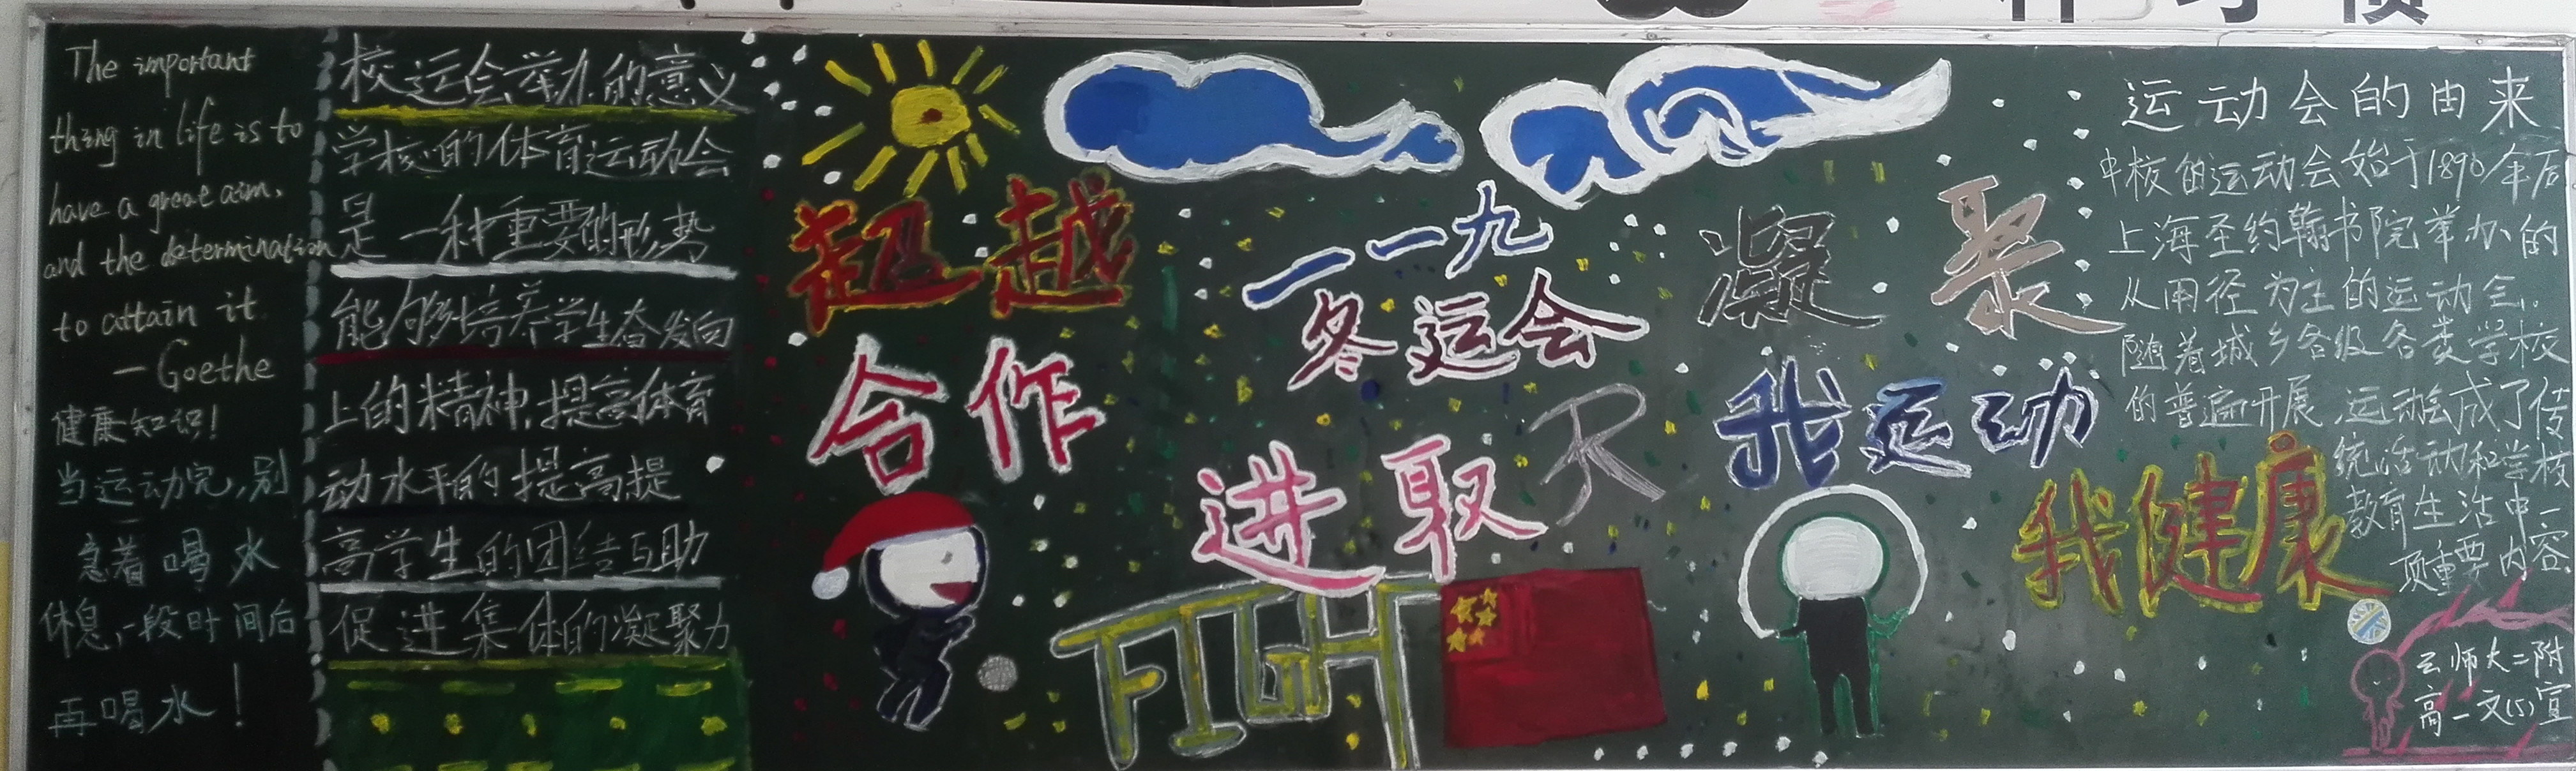 The important
thing in life is to
have a great aim,
and the determination
to attain it
— Goethe
健康知识!
当运动完,别
急着喝水
休息,一段时间后
再喝水!
校运会举办的意义
学校的体育运动会
是一种重要的形势
能够培养学生奋发向
上的精神,提高体育
动水平的提高提
高学生的团结互助
促进集体的凝聚力
超越
合作
一一九
冬运会
进取
FIGHT
凝聚
我运动
我健康
运动会的由来
中校的运动会始于1890年后
上海圣约翰书院举办的
从田径为主的运动会.
随着城乡各级各类学校
的普遍开展,运动会成了传
统活动和学校
教育生活中一
项重要内容.
云师大二附
高一文(5)宣